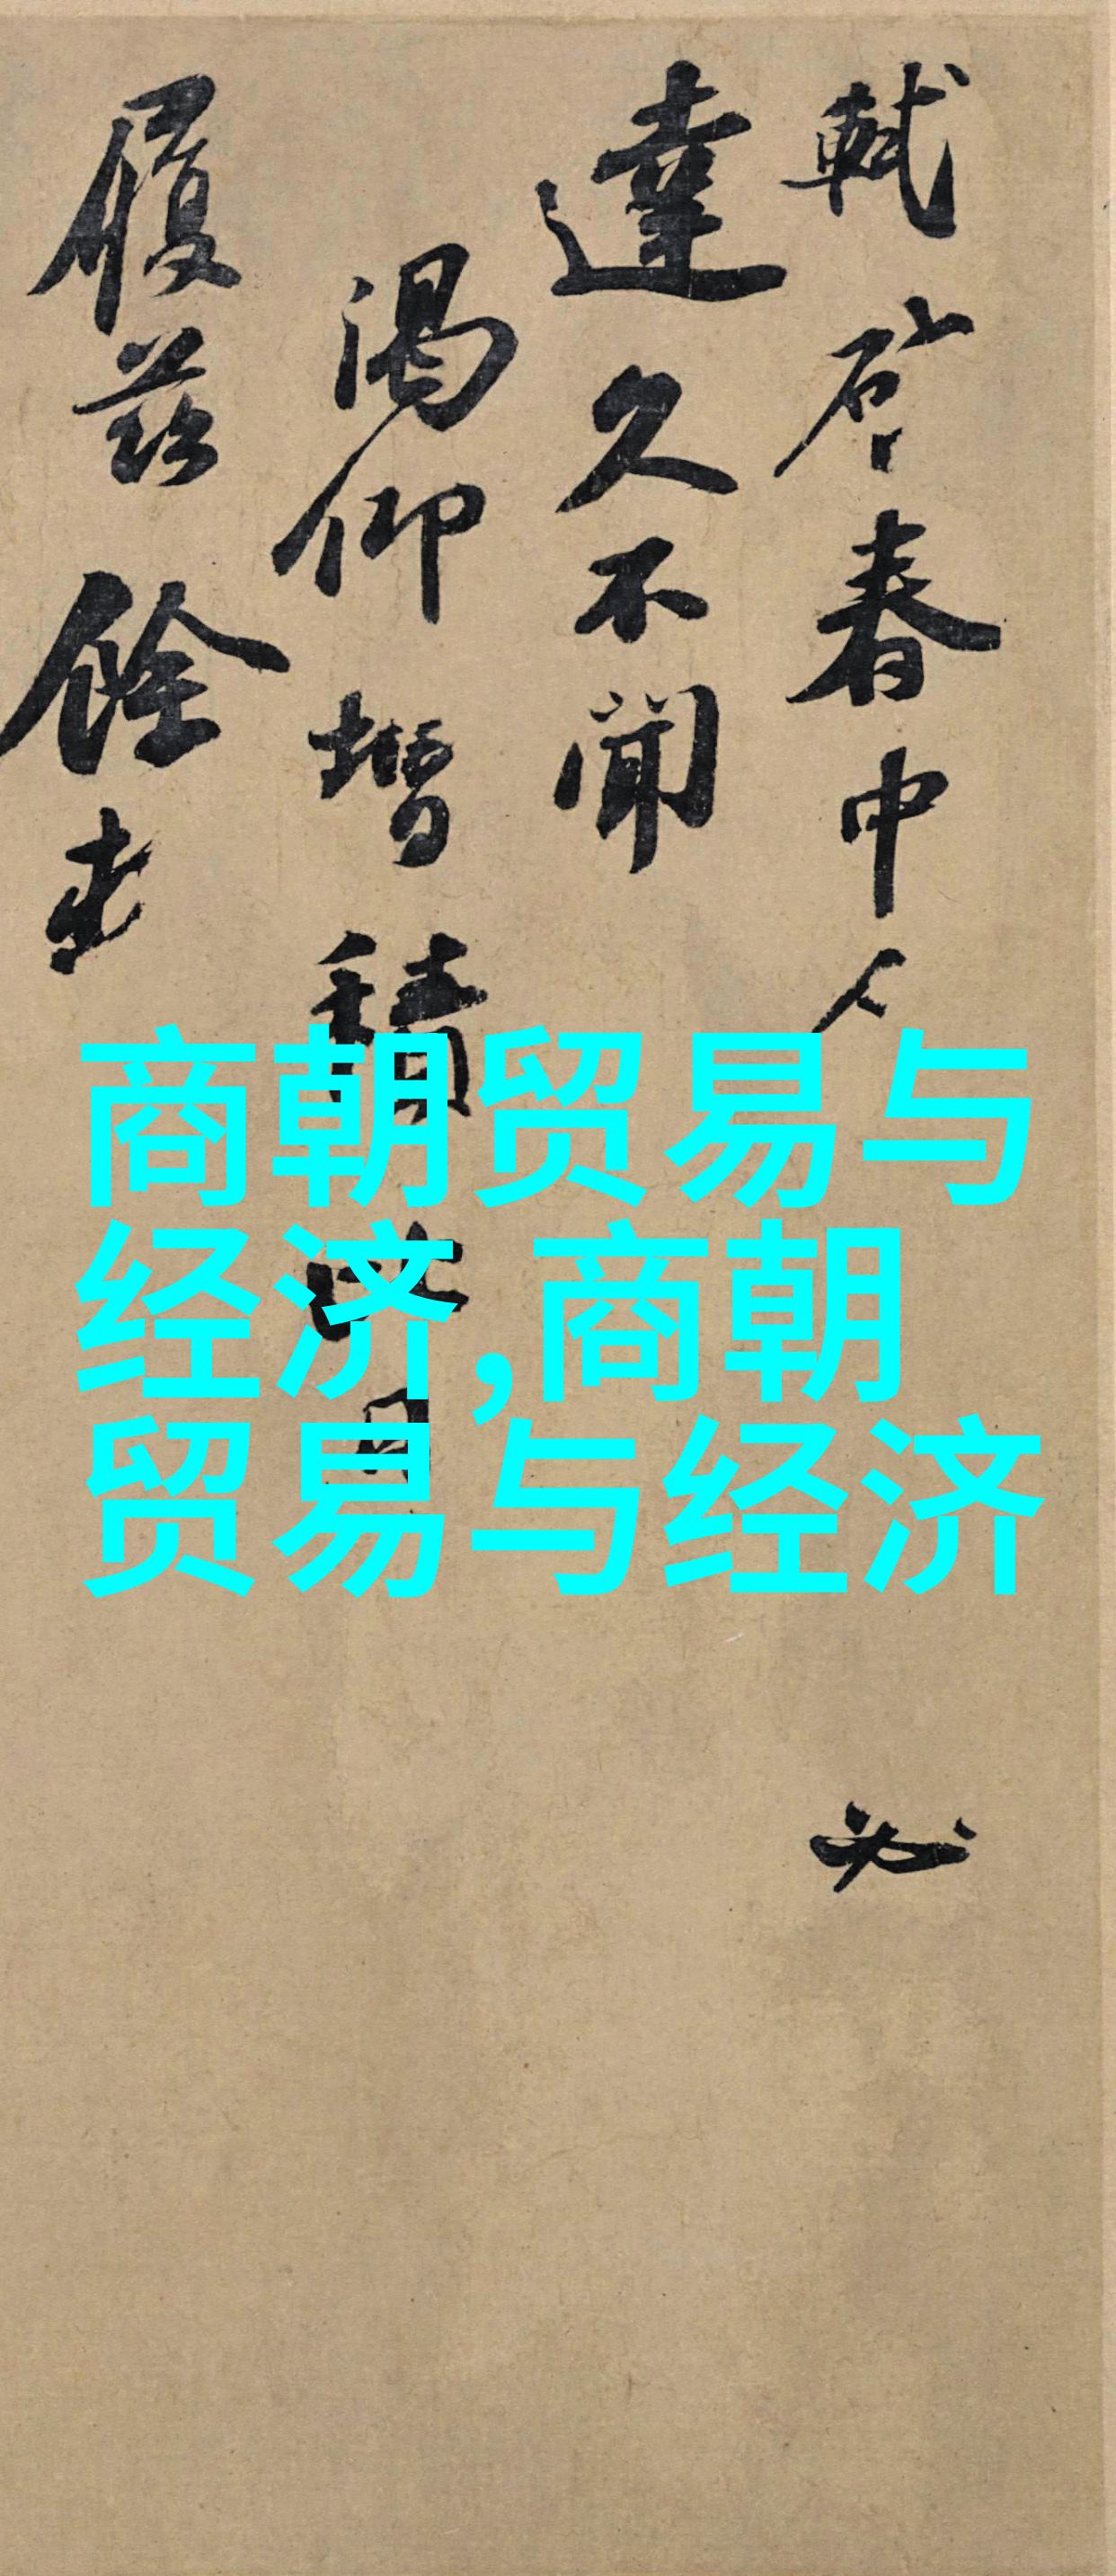 軾啓春中人必
達久不聞
渴仰增積比日
履茲餘
商朝贸易与
经济,商朝
贸易与经济